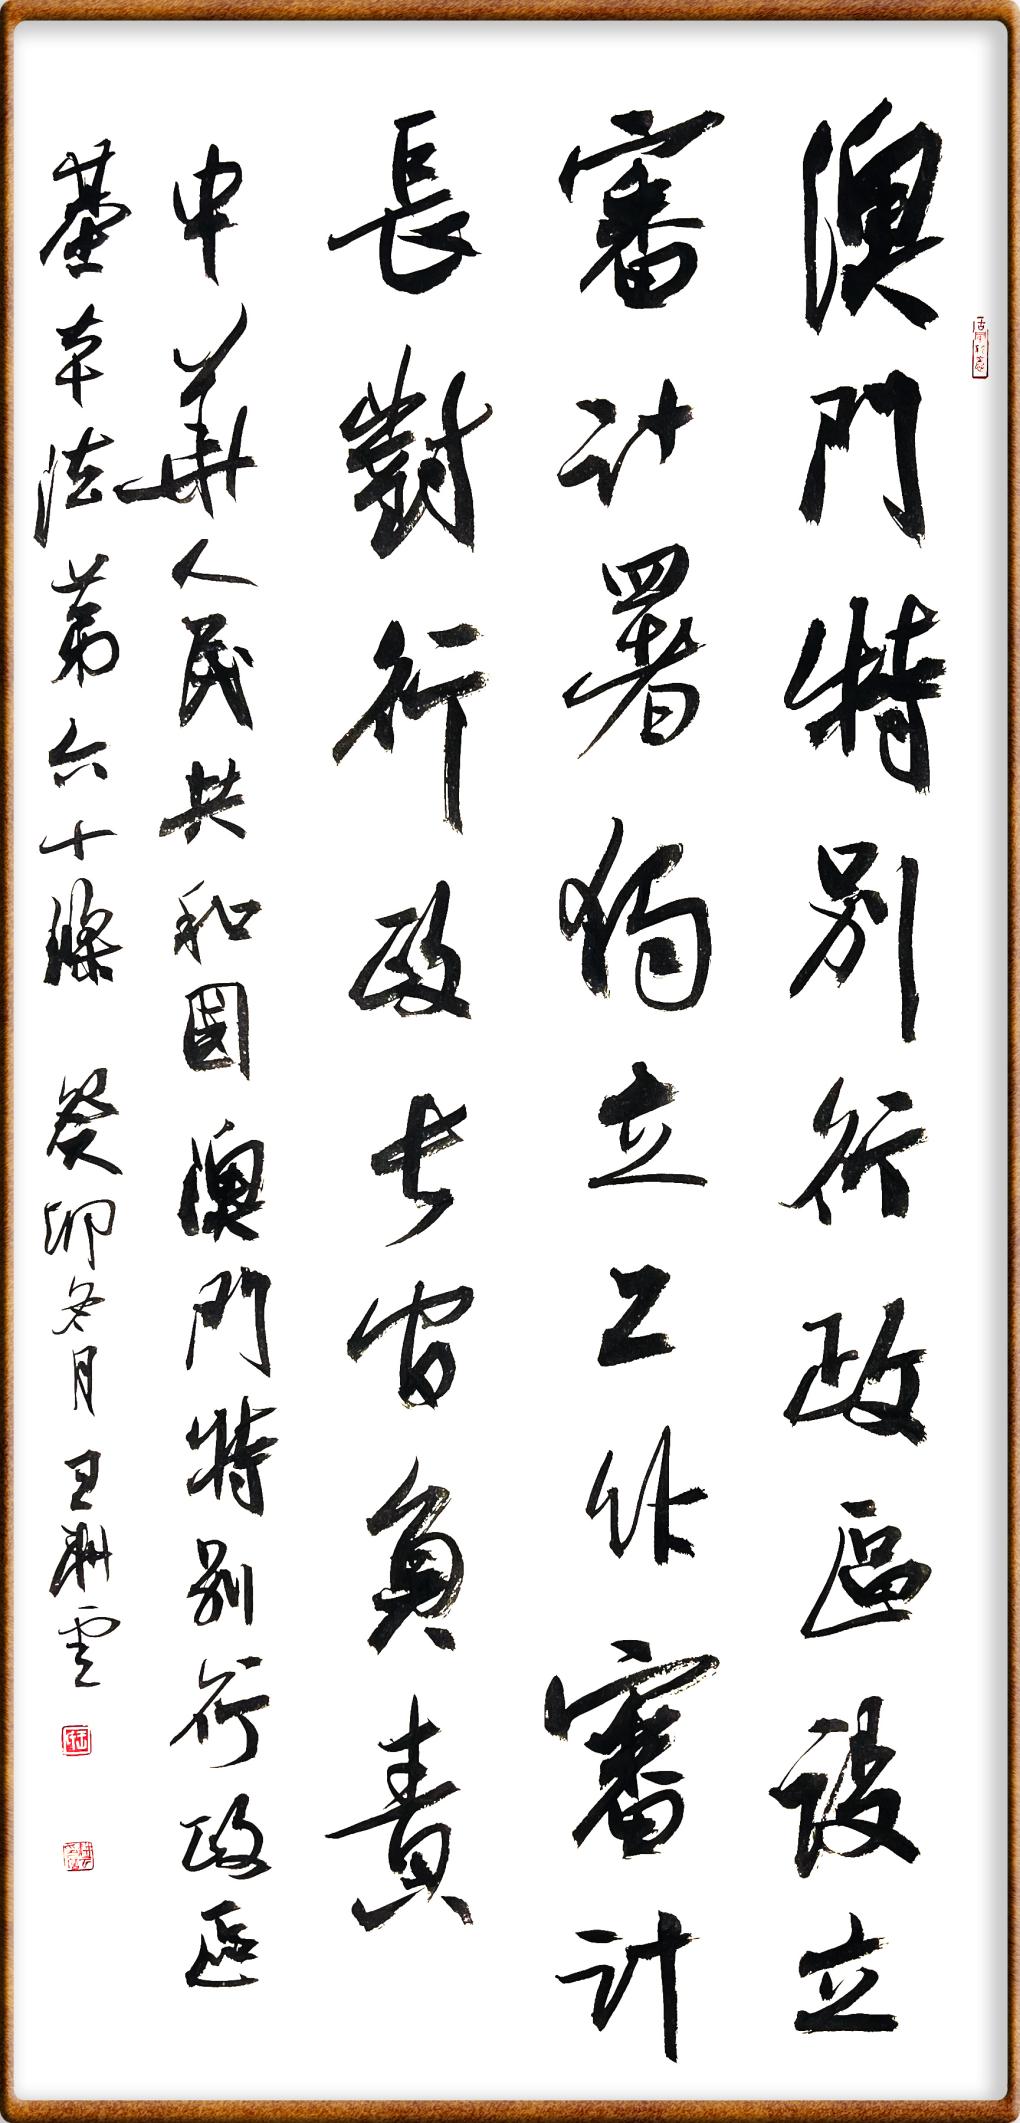 澳門特別行政區設立
審計署獨立工作審計
長對行政長官負責
中華人民共和國澳門特別行政區
基本法第六十條 癸卯冬月 王耕雲